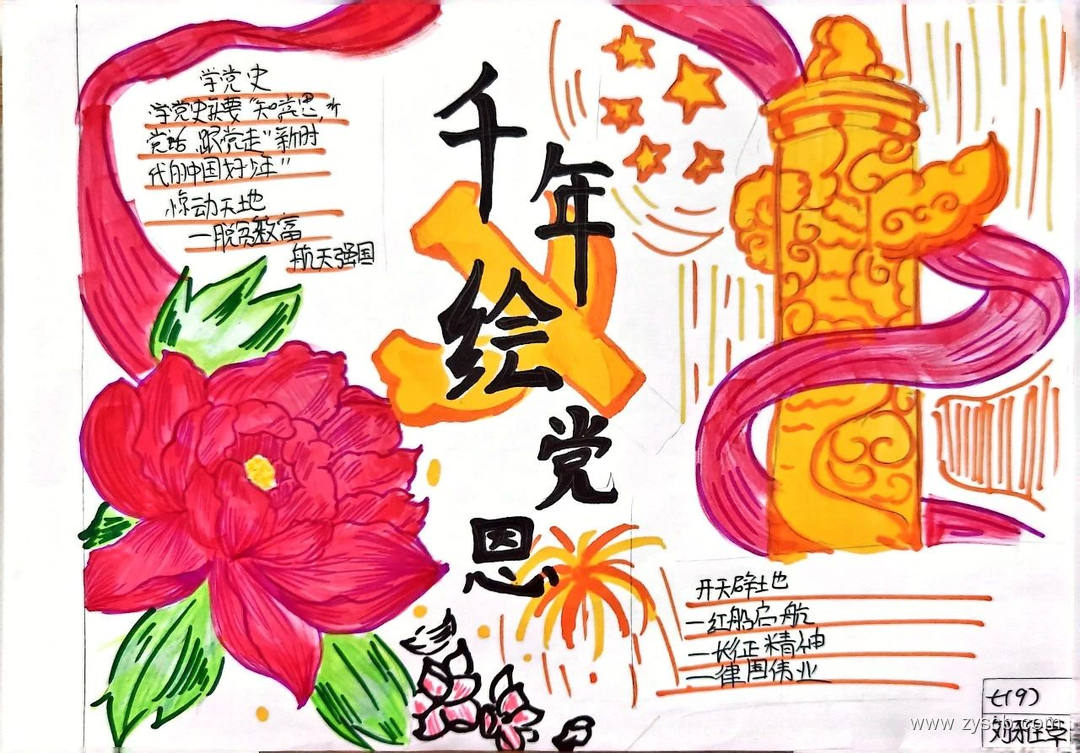 学党史
学党史就要"知党恩,听
党话 跟党走"新时
代的中国好少年"
惊动天地
一脱贫致富
航天强国
千年绘党恩
开天辟地
一红船启航
一长征精神
一律国伟业
七(9)
www.zyscb.com